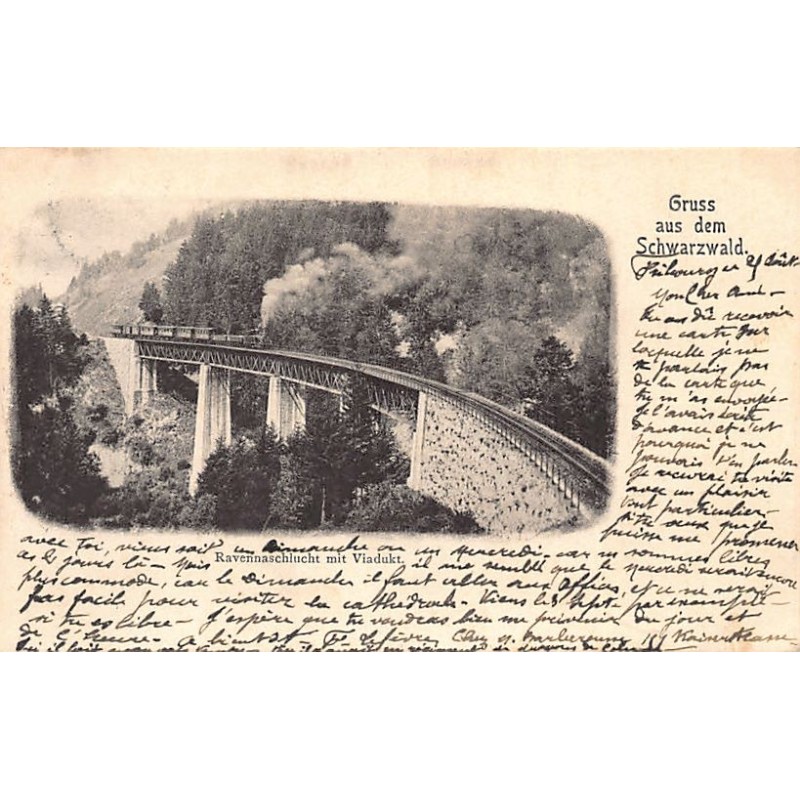 Gruss
aus dem
Schwarzwald.
Fribourg 25 Août
Mon Cher Ami
Tu as dû recevoir
une carte sur
laquelle je ne
te parlais pas
de la carte que
tu m'as envoyée
Je l'avais écrite
d'avance et c'est
pourquoi je ne
pouvais t'en parler
Je recevrai ta visite
avec un plaisir
tout particulier
que je
puisse me promener
avec toi, viens soit un Dimanche ou un Mercredi car ns sommes libres
ces jours là - Mais il me semble que le Mercredi serait encore
Ravennaschlucht mit Viadukt.
plus commode, car le Dimanche il faut aller aux offices, et ce ne serait
pas facile pour visiter la cathédrale. Viens le 8 Sept. par exemple
si tu es libre - J'espère que tu voudras bien me prévenir du jour et
de l'heure - à bientôt Lefèvre Chez